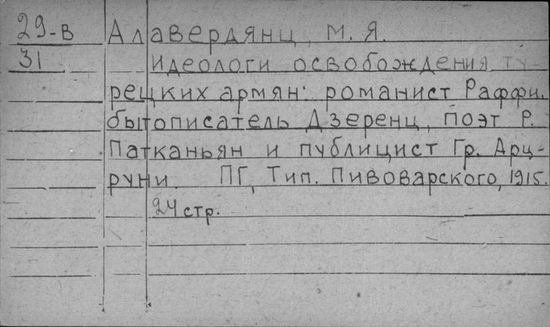 29-в Алавердянц, М. Я.
31 Идеологи освобождения ту-
рецких армян: романист Раффи,
бытописатель Дзеренц, поэт Р.
Патканьян и публицист Гр. Арц-
руни. ПГ, Тип. Пивоварского, 1915.
24 стр.